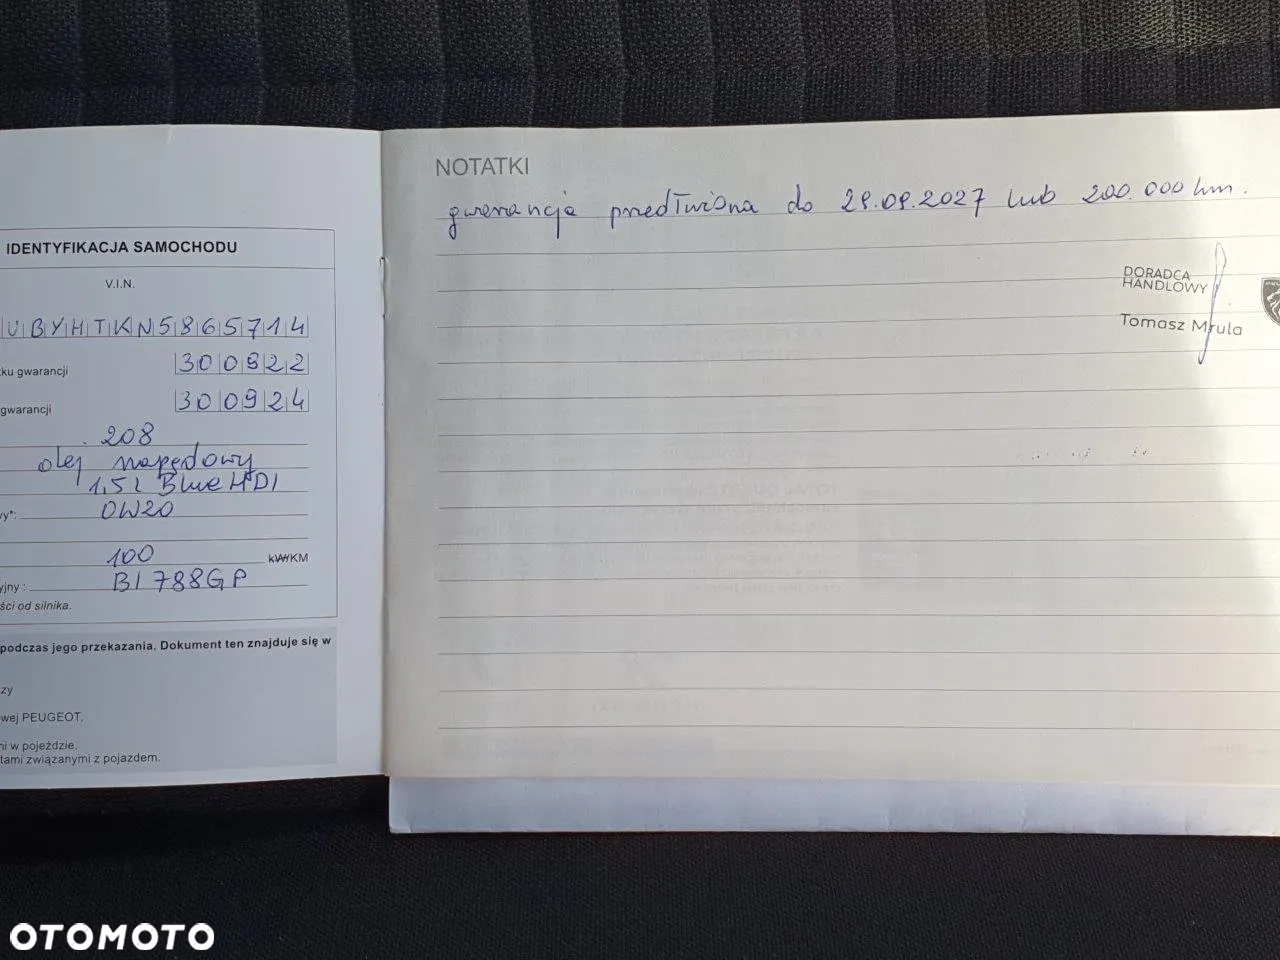 IDENTYFIKACJA SAMOCHODU
V.I.N.
UBYHTKN5865714
ku gwarancji 300922
gwarancji 300924
208
olej napędowy
1,5l Blue HDI
wy*: 0W20
100 kW/KM
yjny: BI788GP
ści od silnika.
podczas jego przekazania. Dokument ten znajduje się w
zy
wej PEUGEOT.
ni w pojeździe.
tami związanymi z pojazdem.
NOTATKI
gwarancja przedłużona do 29.09.2027 lub 200.000 km.
DORADCA
HANDLOWY
Tomasz Mrula
OTOMOTO